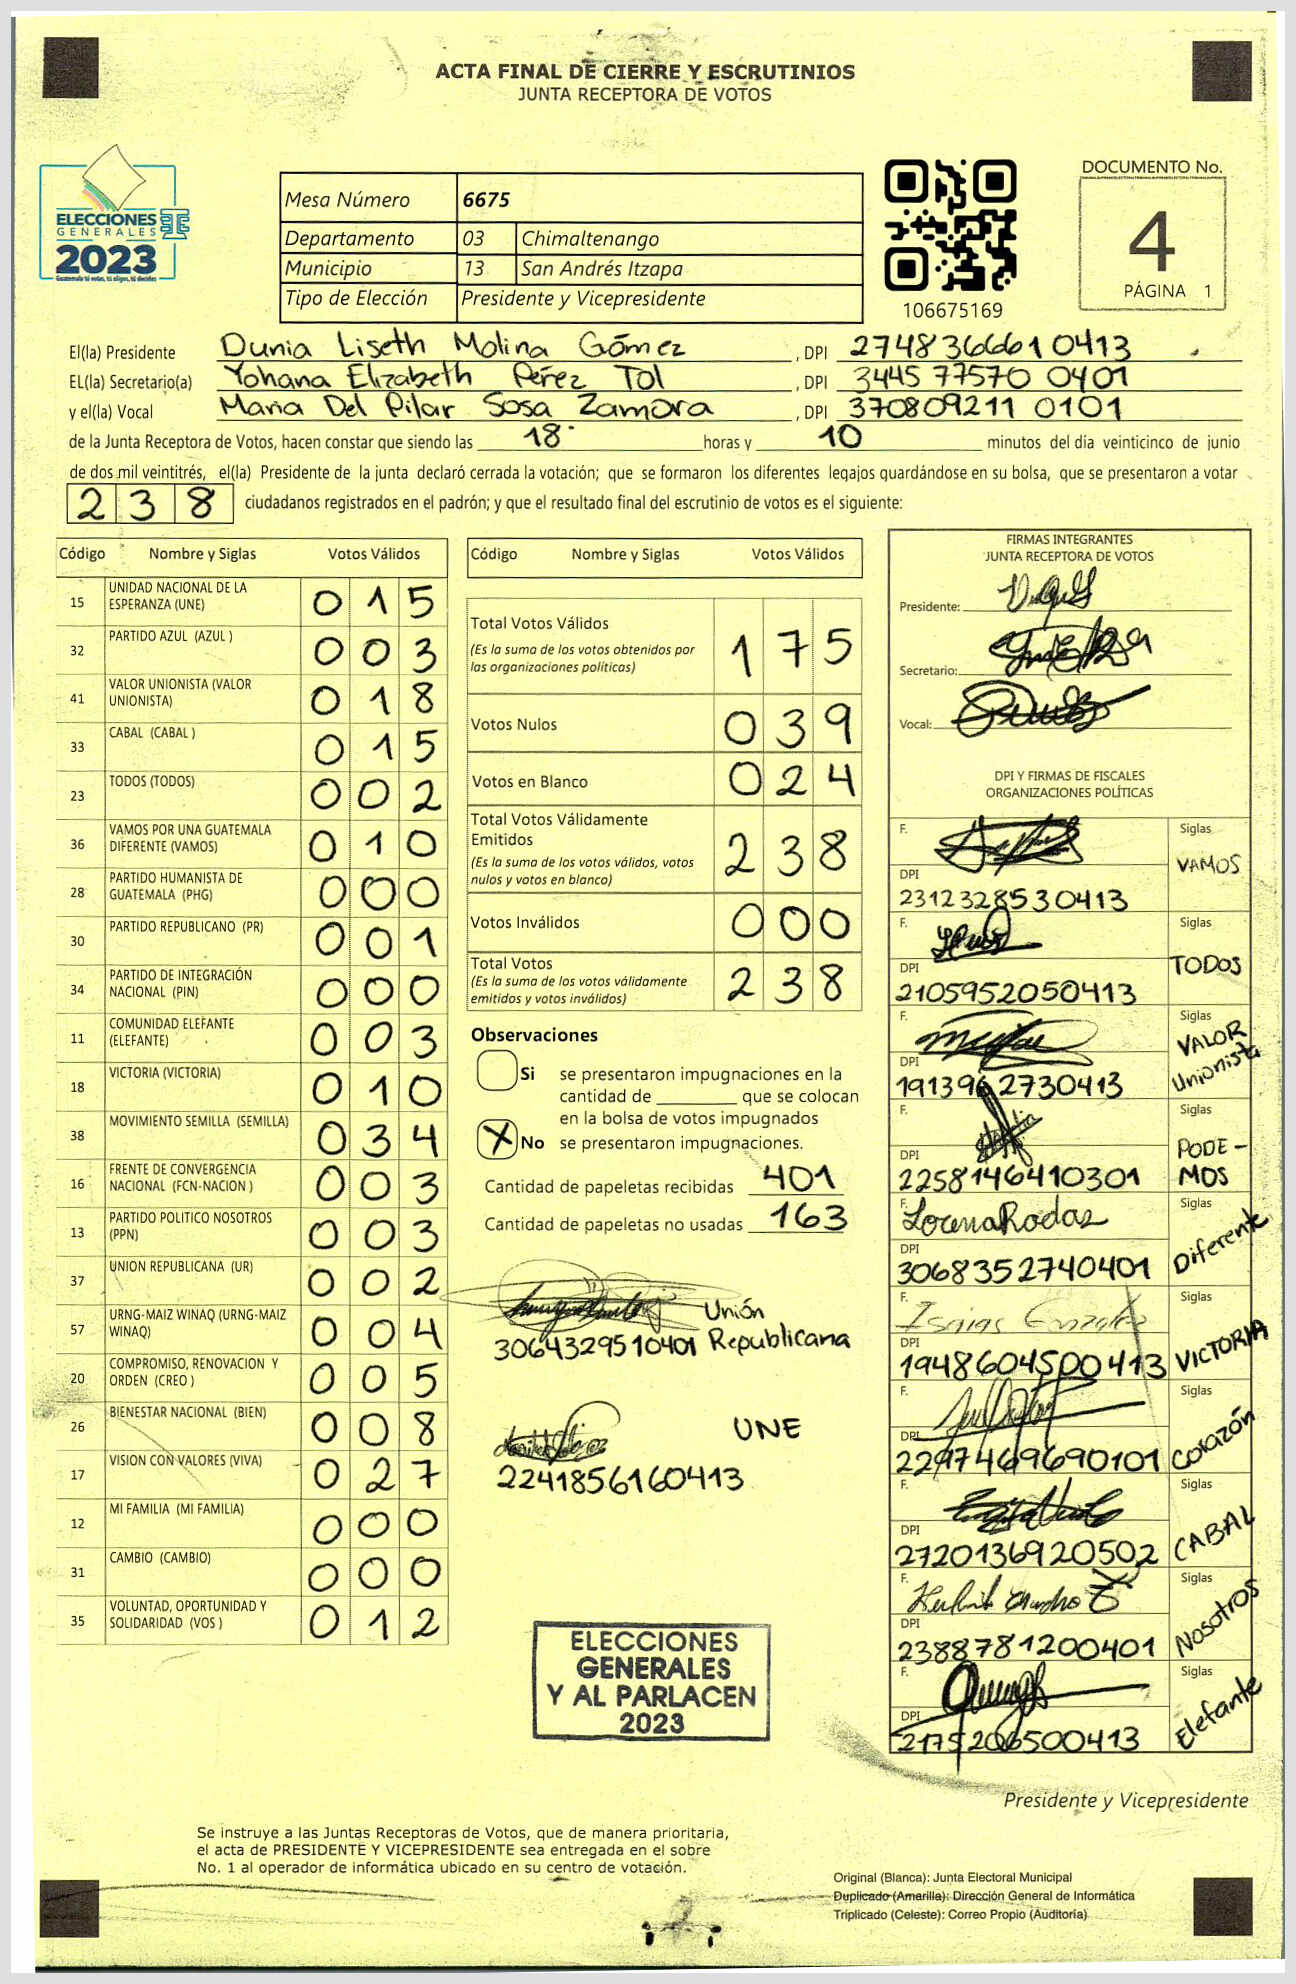 ACTA FINAL DE CIERRE Y ESCRUTINIOS
JUNTA RECEPTORA DE VOTOS
ELECCIONES
GENERALES
2023
Guatemala tú votas, tú eliges, tú decides
Mesa Número 6675
Departamento 03 Chimaltenango
Municipio 13 San Andrés Itzapa
Tipo de Elección Presidente y Vicepresidente
106675169
DOCUMENTO No.
4
PÁGINA 1
El(la) Presidente Dunia Liseth Molina Gómez , DPI 2748366610413
EL(la) Secretario(a) Yohana Elizabeth Pérez Tol , DPI 3445 77570 0401
y el(la) Vocal Maria Del Pilar Sosa Zamora , DPI 370809211 0101
de la Junta Receptora de Votos, hacen constar que siendo las 18 horas y 10 minutos del día veinticinco de junio
de dos mil veintitrés, el(la) Presidente de la junta declaró cerrada la votación; que se formaron los diferentes legajos quardándose en su bolsa, que se presentaron a votar
238 ciudadanos registrados en el padrón; y que el resultado final del escrutinio de votos es el siguiente:
Código Nombre y Siglas Votos Válidos
15 UNIDAD NACIONAL DE LA ESPERANZA (UNE) 015
32 PARTIDO AZUL (AZUL ) 003
41 VALOR UNIONISTA (VALOR UNIONISTA) 018
33 CABAL (CABAL ) 015
23 TODOS (TODOS) 002
36 VAMOS POR UNA GUATEMALA DIFERENTE (VAMOS) 010
28 PARTIDO HUMANISTA DE GUATEMALA (PHG) 000
30 PARTIDO REPUBLICANO (PR) 001
34 PARTIDO DE INTEGRACIÓN NACIONAL (PIN) 000
11 COMUNIDAD ELEFANTE (ELEFANTE) 003
18 VICTORIA (VICTORIA) 010
38 MOVIMIENTO SEMILLA (SEMILLA) 034
16 FRENTE DE CONVERGENCIA NACIONAL (FCN-NACION ) 003
13 PARTIDO POLITICO NOSOTROS (PPN) 003
37 UNION REPUBLICANA (UR) 002
57 URNG-MAIZ WINAQ (URNG-MAIZ WINAQ) 004
20 COMPROMISO, RENOVACION Y ORDEN (CREO ) 005
26 BIENESTAR NACIONAL (BIEN) 008
17 VISION CON VALORES (VIVA) 027
12 MI FAMILIA (MI FAMILIA) 000
31 CAMBIO (CAMBIO) 000
35 VOLUNTAD, OPORTUNIDAD Y SOLIDARIDAD (VOS ) 012
Código Nombre y Siglas Votos Válidos
Total Votos Válidos 175
(Es la suma de los votos obtenidos por
las organizaciones políticas)
Votos Nulos 039
Votos en Blanco 024
Total Votos Válidamente
Emitidos 238
(Es la suma de los votos válidos, votos
nulos y votos en blanco)
Votos Inválidos 000
Total Votos 238
(Es la suma de los votos válidamente
emitidos y votos inválidos)
Observaciones
Si se presentaron impugnaciones en la
cantidad de ________ que se colocan
en la bolsa de votos impugnados
X No se presentaron impugnaciones.
Cantidad de papeletas recibidas 401
Cantidad de papeletas no usadas 163
Unión
3064329510401 Republicana
UNE
2241856160413
ELECCIONES
GENERALES
Y AL PARLACEN
2023
FIRMAS INTEGRANTES
JUNTA RECEPTORA DE VOTOS
Presidente:
Secretario:
Vocal:
DPI Y FIRMAS DE FISCALES
ORGANIZACIONES POLÍTICAS
F. Siglas
VAMOS
DPI
2312328530413
F. Siglas
TODOS
DPI
2105952050413
F. Siglas
VALOR
Unionista
DPI
1913962730413
F. Siglas
PODE-
MOS
DPI
2258146410301
F. Lorena Rodas Siglas
Diferente
DPI
3068352740401
F. Isaias Gonzales Siglas
VICTORIA
DPI
1948604500413
F. Siglas
Corazón
DPI
2297469690101
F. Siglas
CABAL
DPI
2720136920502
F. Siglas
Nosotros
DPI
2388781200401
F. Siglas
Elefante
DPI
2175206500413
Presidente y Vicepresidente
Se instruye a las Juntas Receptoras de Votos, que de manera prioritaria,
el acta de PRESIDENTE Y VICEPRESIDENTE sea entregada en el sobre
No. 1 al operador de informática ubicado en su centro de votación.
Original (Blanca): Junta Electoral Municipal
Duplicado (Amarilla): Dirección General de Informática
Triplicado (Celeste): Correo Propio (Auditoría)